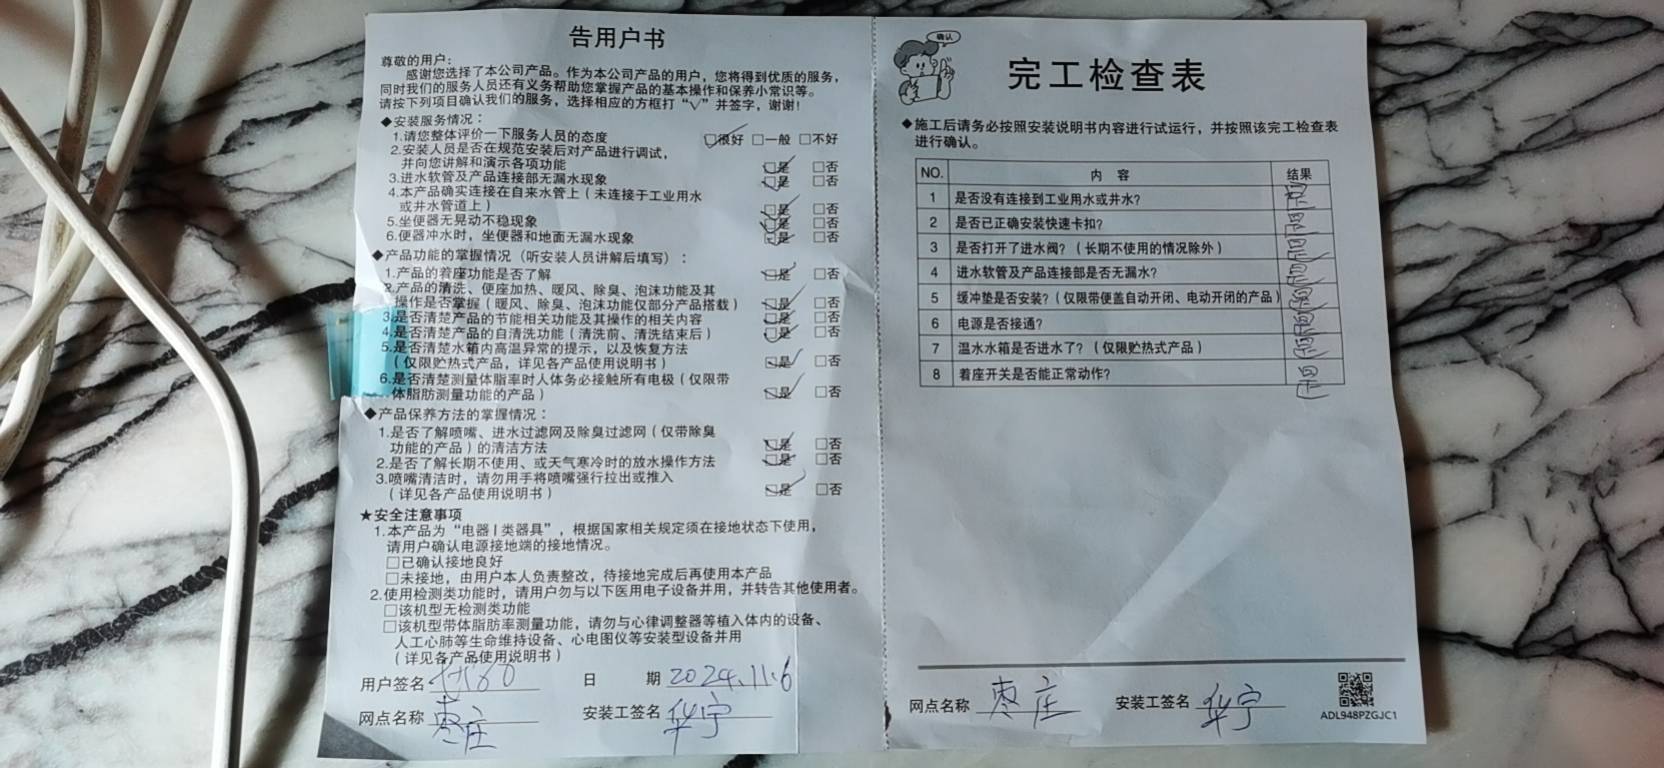 告用户书
尊敬的用户：
感谢您选择了本公司产品。作为本公司产品的用户，您将得到优质的服务，
同时我们的服务人员还有义务帮助您掌握产品的基本操作和保养小常识等。
请按下列项目确认我们的服务，选择相应的方框打“√”并签字，谢谢！
◆安装服务情况：
1.请您整体评价一下服务人员的态度 ☑很好 □一般 □不好
2.安装人员是否在规范安装后对产品进行调试，
并向您讲解和演示各项功能 ☑是 □否
3.进水软管及产品连接部无漏水现象 ☑是 □否
4.本产品确实连接在自来水管上（未连接于工业用水
或井水管道上） ☑是 □否
5.坐便器无晃动不稳现象 ☑是 □否
6.便器冲水时，坐便器和地面无漏水现象 ☑是 □否
◆产品功能的掌握情况（听安装人员讲解后填写）：
1.产品的着座功能是否了解 ☑是 □否
2.产品的清洗、便座加热、暖风、除臭、泡沫功能及其
操作是否掌握（暖风、除臭、泡沫功能仅部分产品搭载） ☑是 □否
3.是否清楚产品的节能相关功能及其操作的相关内容 ☑是 □否
4.是否清楚产品的自清洗功能（清洗前、清洗结束后） ☑是 □否
5.是否清楚水箱内高温异常的提示，以及恢复方法
（仅限贮热式产品，详见各产品使用说明书） ☑是 □否
6.是否清楚测量体脂率时人体务必接触所有电极（仅限带
体脂肪测量功能的产品） ☑是 □否
◆产品保养方法的掌握情况：
1.是否了解喷嘴、进水过滤网及除臭过滤网（仅带除臭
功能的产品）的清洁方法 ☑是 □否
2.是否了解长期不使用、或天气寒冷时的放水操作方法 ☑是 □否
3.喷嘴清洁时，请勿用手将喷嘴强行拉出或推入
（详见各产品使用说明书） ☑是 □否
★安全注意事项
1.本产品为“电器Ⅰ类器具”，根据国家相关规定须在接地状态下使用，
请用户确认电源接地端的接地情况。
□已确认接地良好
□未接地，由用户本人负责整改，待接地完成后再使用本产品
2.使用检测类功能时，请用户勿与以下医用电子设备并用，并转告其他使用者。
□该机型无检测类功能
□该机型带体脂肪率测量功能，请勿与心律调整器等植入体内的设备、
人工心肺等生命维持设备、心电图仪等安装型设备并用
（详见各产品使用说明书）
用户签名 日 期 2024.11.6
网点名称 枣庄 安装工签名 华宁
确认
完工检查表
◆施工后请务必按照安装说明书内容进行试运行，并按照该完工检查表
进行确认。
NO. 内 容 结果
1 是否没有连接到工业用水或井水？
2 是否已正确安装快速卡扣？
3 是否打开了进水阀？（长期不使用的情况除外）
4 进水软管及产品连接部是否无漏水？
5 缓冲垫是否安装？（仅限带便盖自动开闭、电动开闭的产品）
6 电源是否接通？
7 温水水箱是否进水了？（仅限贮热式产品）
8 着座开关是否能正常动作？
网点名称 枣庄 安装工签名 华宁
ADL948PZGJC1